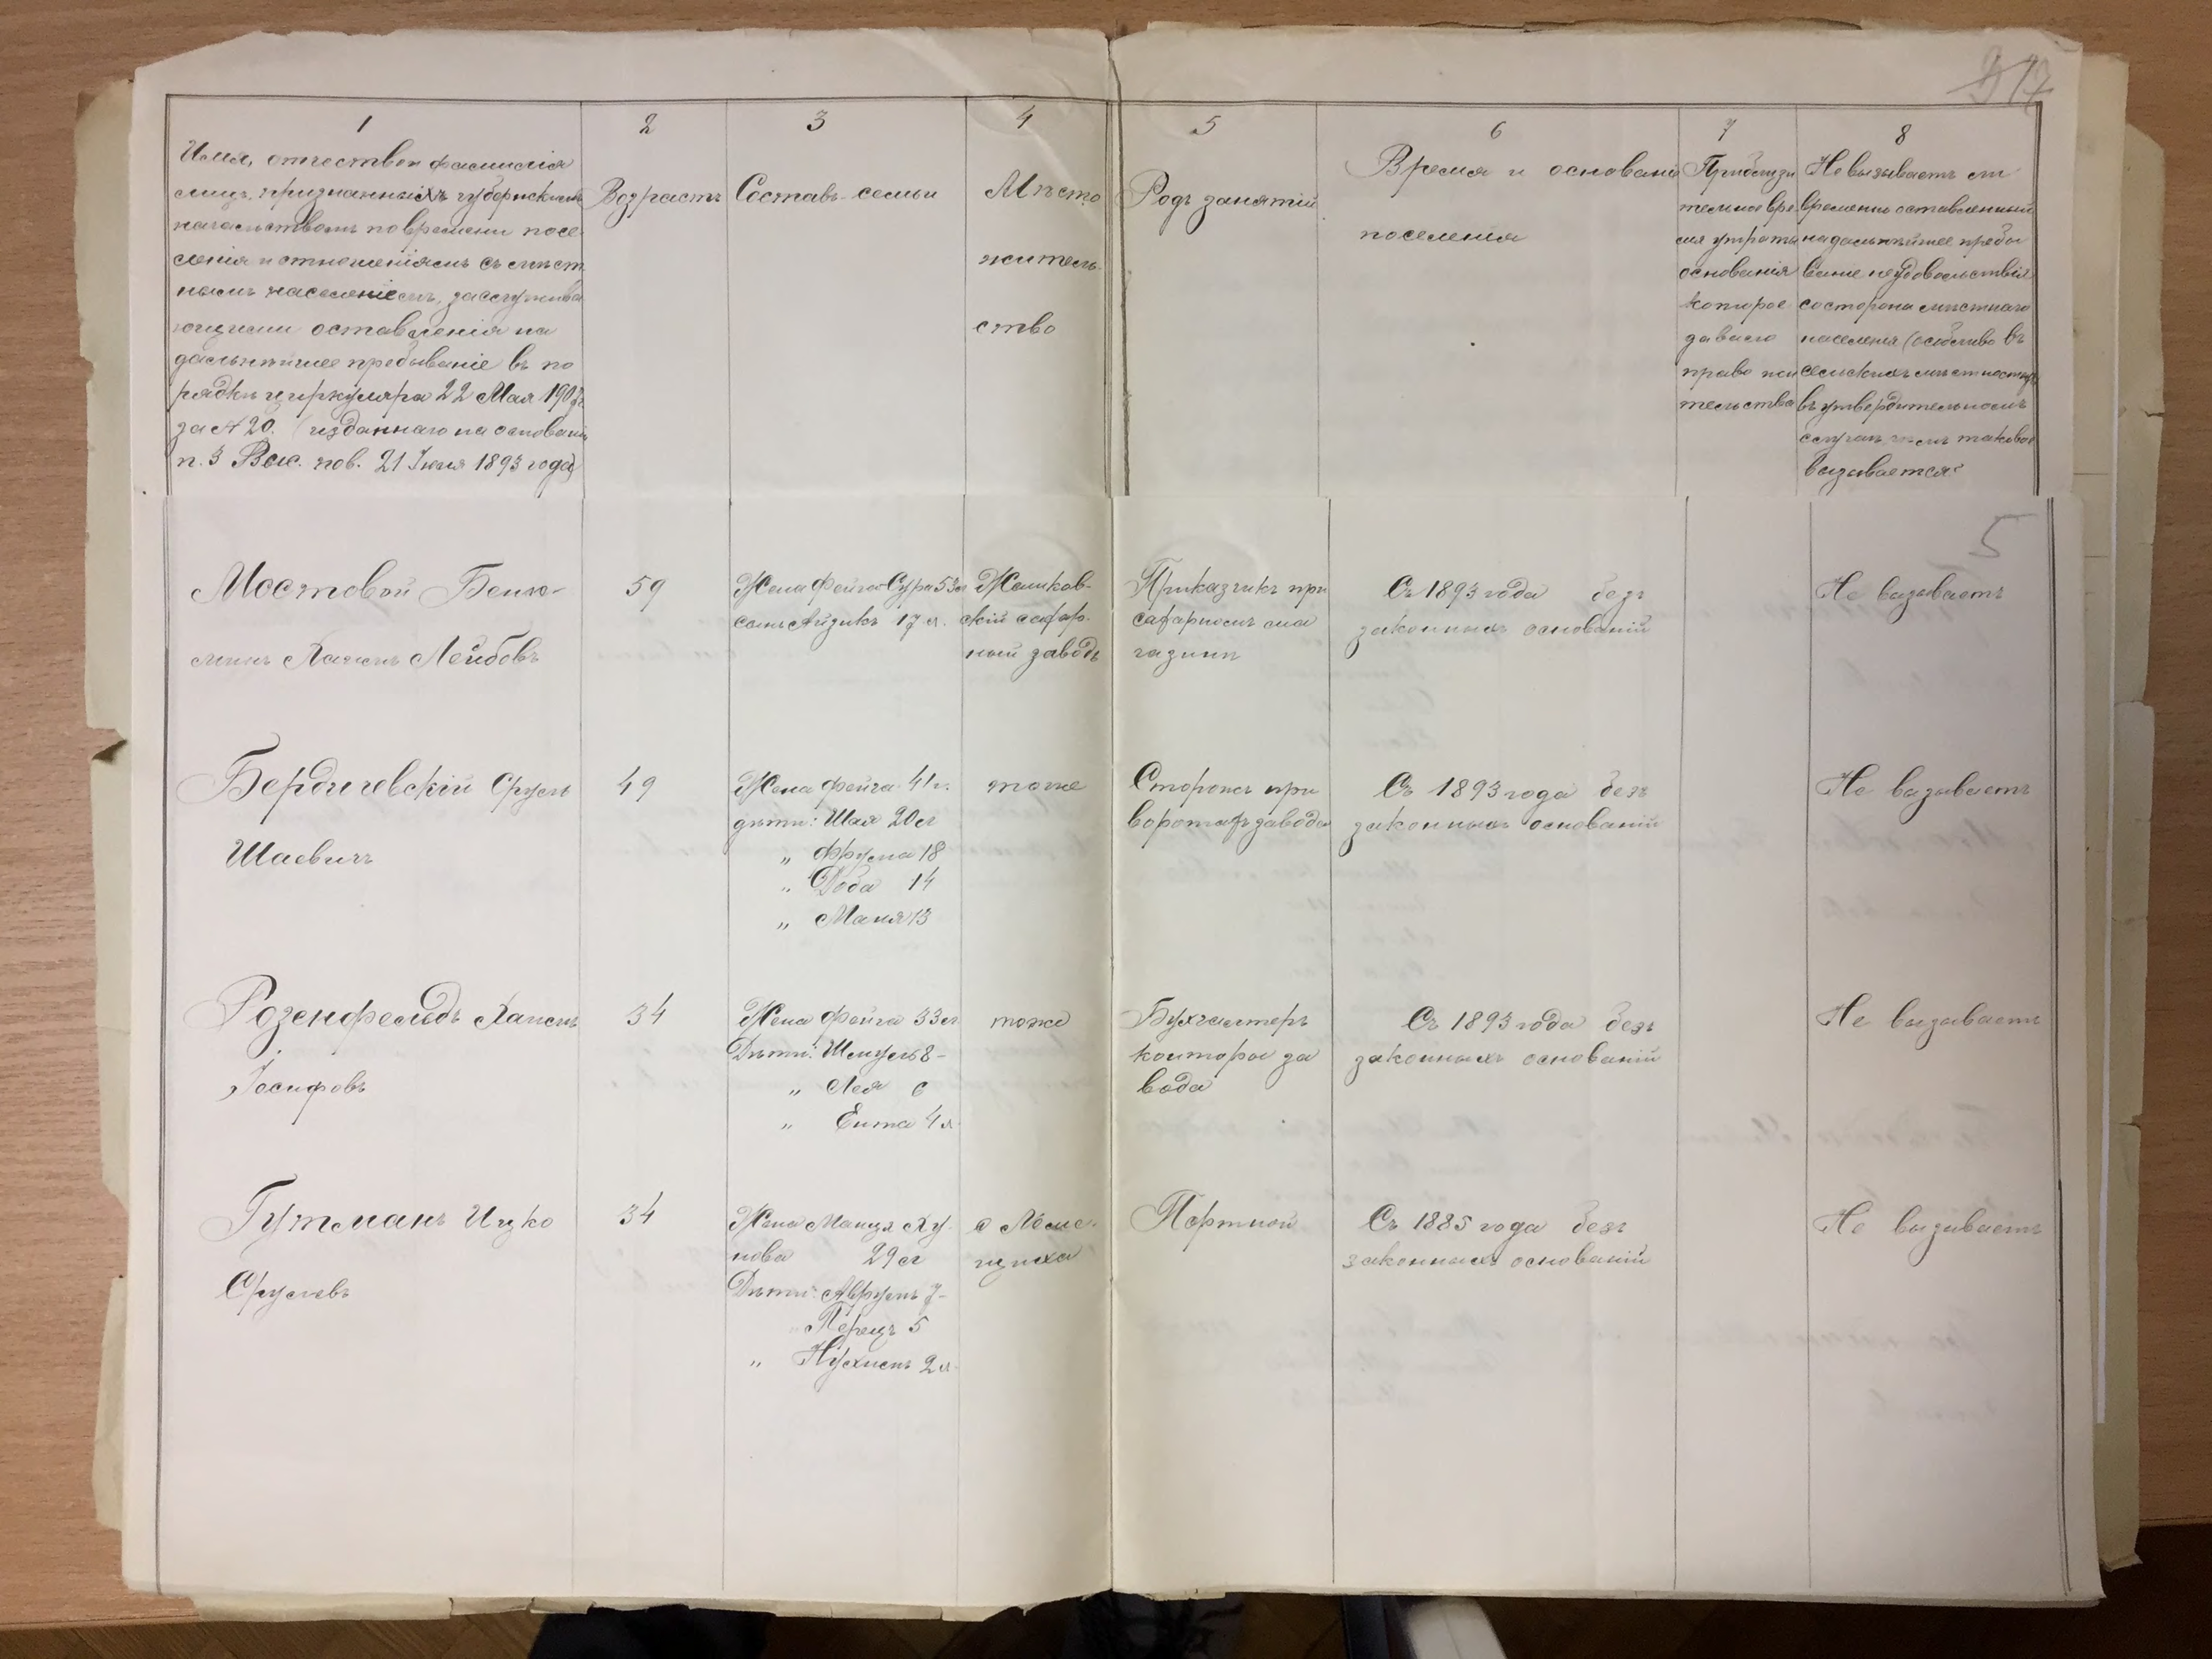 1
Имя, отчество и фамилія
лицъ, признанныхъ губернскимъ
начальствомъ по времени посе-
ленія и отношеніямъ съ мѣст-
нымъ населеніемъ, заслужива-
ющими оставленія на
дальнѣйшее пребываніе въ по
рядкѣ циркуляра 22 Мая 1907 г.
за № 20. (изданнаго на основаніи
п. 3 Выс. пов. 21 Іюля 1893 года)
2
Возрастъ
3
Составъ семьи
4
Мѣсто
житель-
ство
5
Родъ занятій
6
Время и основаніе
поселенія
7
Приблизи
тельное вре-
мя утраты
основанія
которое
давало
право жи
тельства
8
Не вызываетъ ли
временно оставленный
на дальнѣйшее пребы
ваніе неудовольствія
со стороны мѣстнаго
населенія (особливо въ
сельскихъ мѣстностяхъ
въ утвердительномъ
случаѣ, чѣмъ таковое
вызывается?
17
5
Мостовой Беню-
минъ Хаимъ Лейбовъ
59
Жена Фейга-Сура 53 л
сынъ Айзикъ 17 л.
Жашков-
скій сахар-
ный заводъ
Приказчикъ при
сахарномъ ма
газинѣ
Съ 1893 года безъ
законныхъ основаній
Не вызываетъ
Бердичевскій Сруль
Шаевичъ
49
Жена Фейга 41 г.
дѣти: Шая 20 л
„ Фрума 18
„ Доба 14
„ Маня 13
тоже
Сторожъ при
воротахъ завода
Съ 1893 года безъ
законныхъ основаній
Не вызываетъ
Розенфельдъ Хаимъ
Іосифовъ
34
Жена Фейга 33 л
Дѣти: Шмуль 8 –
„ Лея 6
„ Ента 4 л.
тоже
Бухгалтеръ
конторы за
вода
Съ 1893 года безъ
законныхъ основаній
Не вызываетъ
Гутманъ Ицко
Срулевъ
34
Жена Манця Ху-
нова 29 л
Дѣти: Аврумъ 7 –
„ Перецъ 5
„ Нухимъ 2 л.
с
Портной
Съ 1885 года безъ
законныхъ основаній
Не вызываетъ